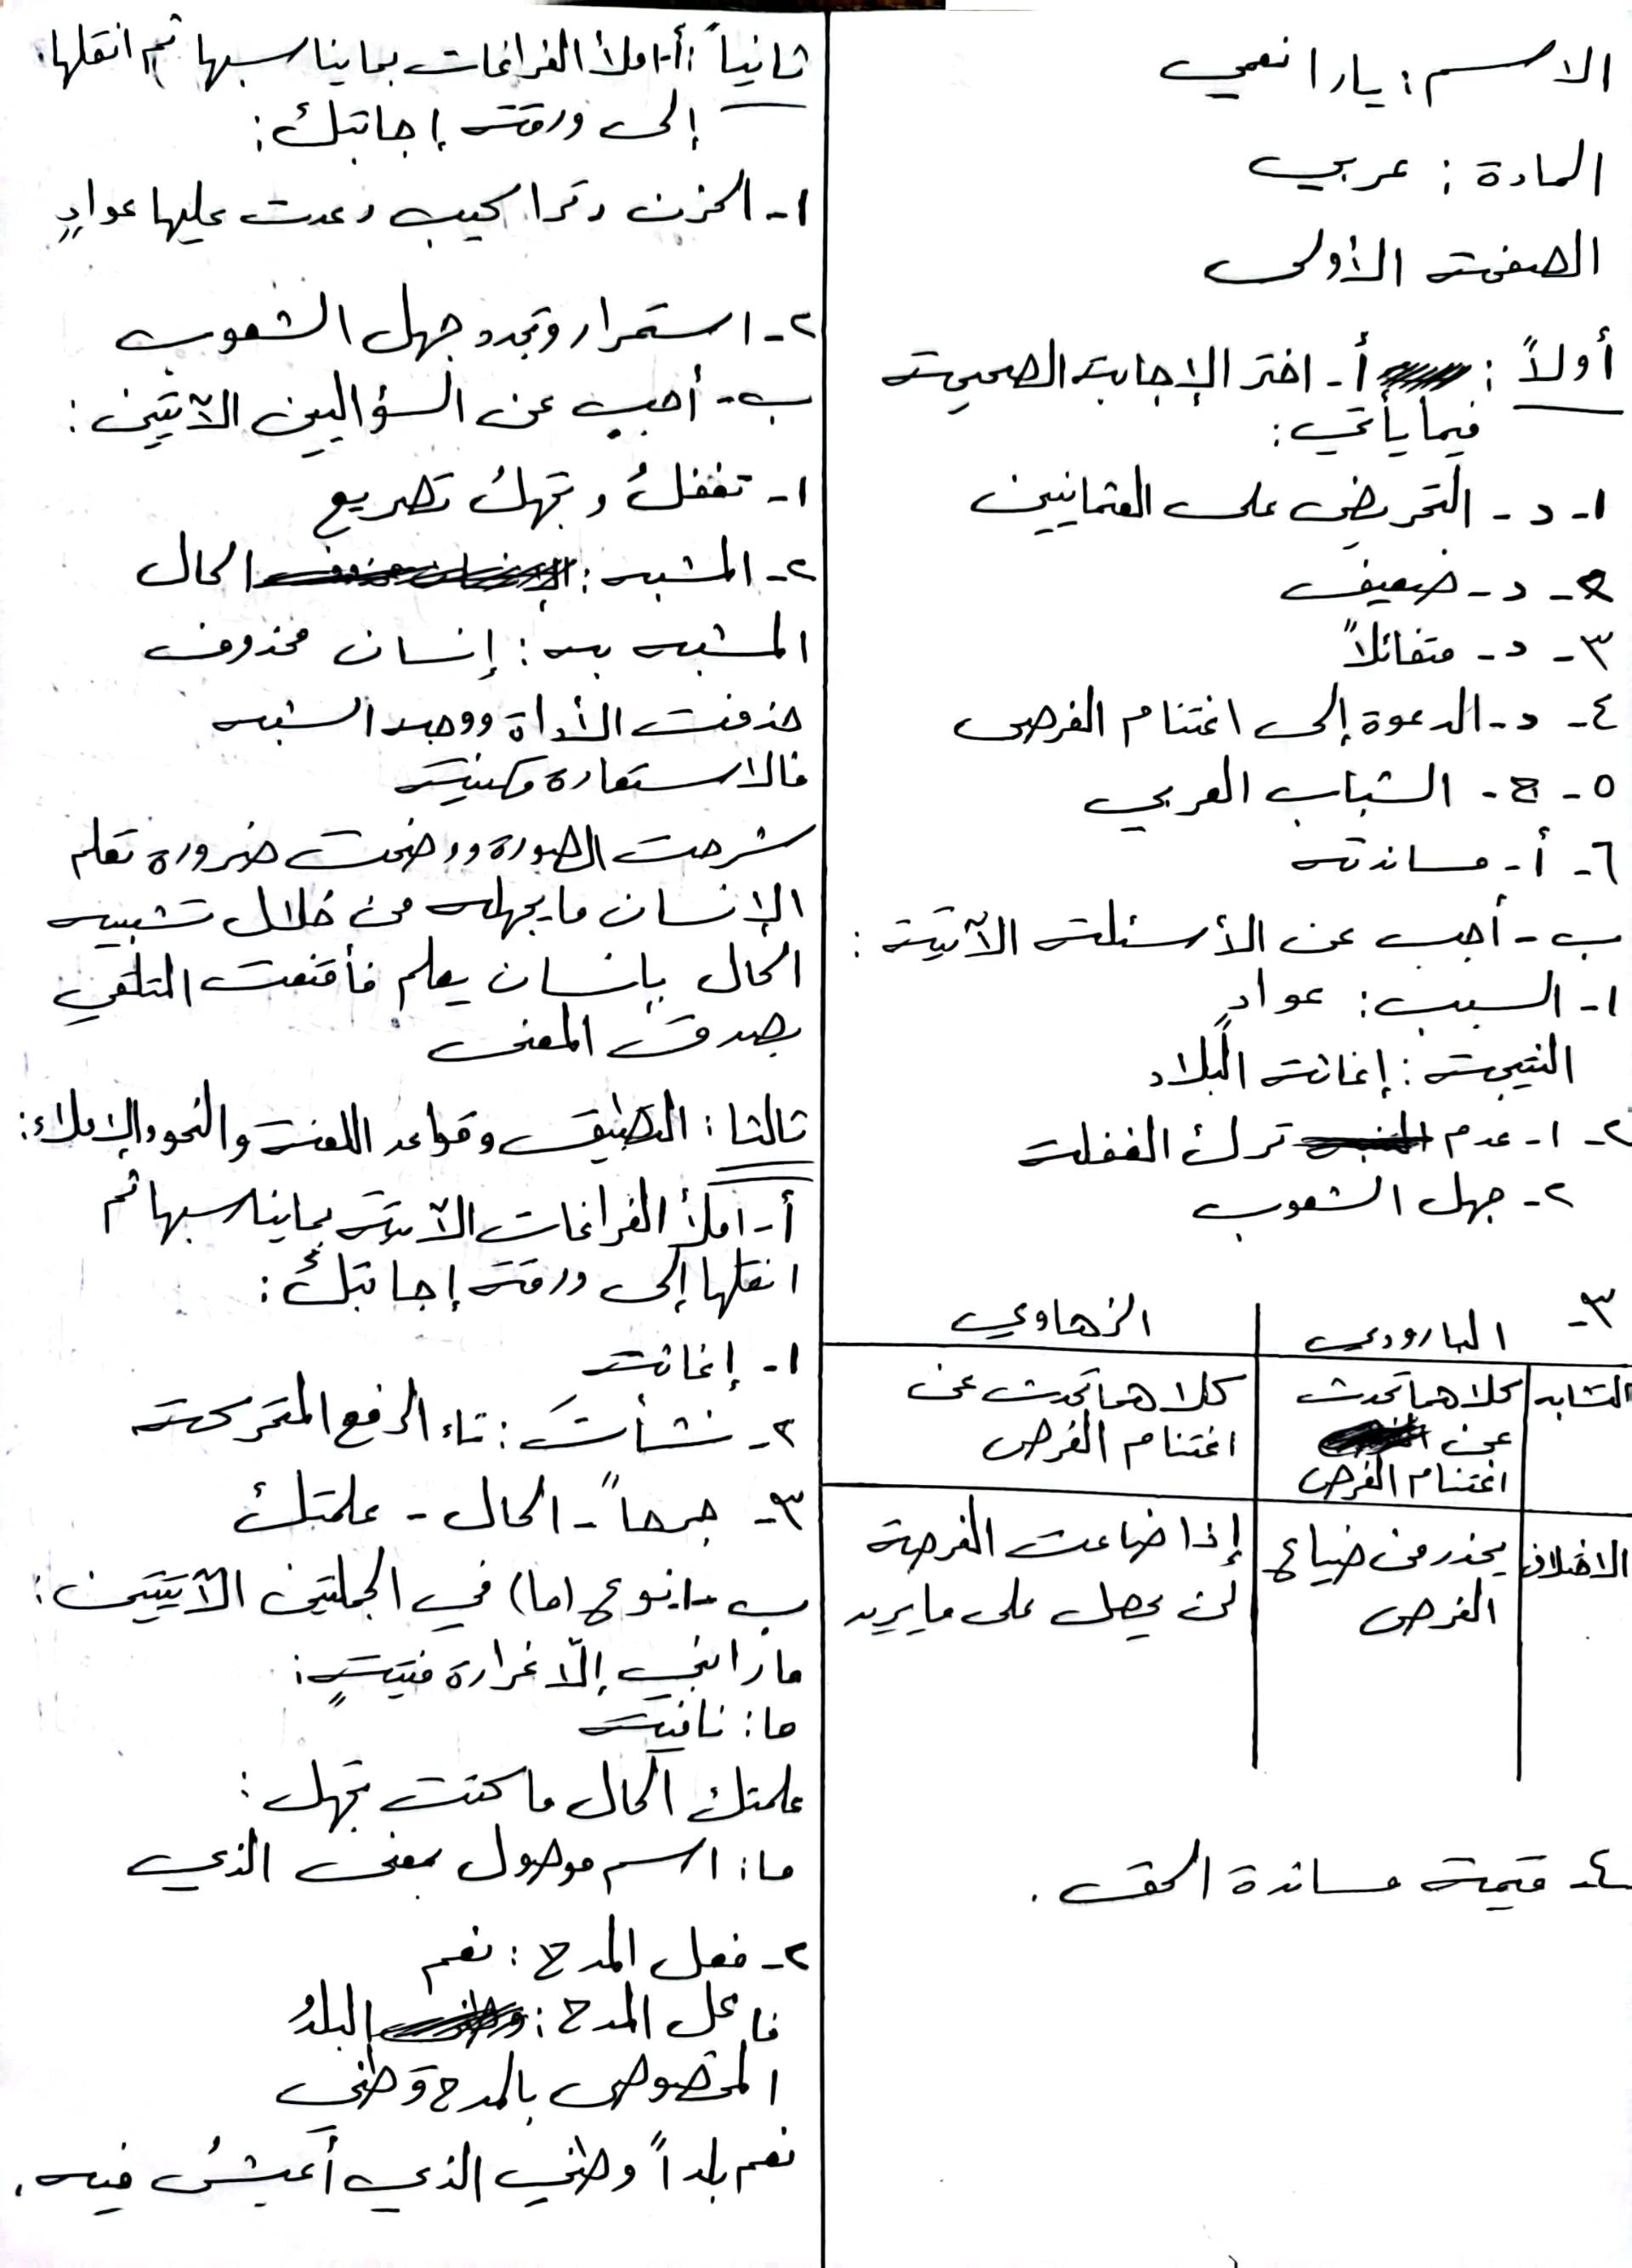 الاسم: يارا نعمي
المادة: عربي
الصفحة الأولى
أولاً: أ- اختر الإجابة الصحيحة
فيما يأتي:
١- د- التحريض على العثمانيين
٢- د- ضعيف
٣- د- متفائلاً
٤- د- الدعوة إلى اغتنام الفرص
٥- ج- الشباب العربي
٦- أ- مساندته
ب- أجب عن الأسئلة الآتية:
١- السبب: عوادٍ
النتيجة: إغاثة البلاد
٢- ١- عدم ترك الغفلة
٢- جهل الشعوب
٣- البارودي الزهاوي
التشابه كلاهما تحدث كلاهما تحدث عن
عن اغتنام الفرص
اغتنام الفرص
الاختلاف يحذر من ضياع إذا ضاعت الفرصة
الفرص لن يحصل على ما يريد
٤- قيمة مساندة الحق.
ثانياً: أ- املأ الفراغات بما يناسبها ثم انقلها
إلى ورقة إجابتك:
١- الحزن تراكيب عدت عليها عوادٍ
٢- استمرار وتجدد جهل الشعوب
ب- أجب عن السؤالين الآتيين:
١- تغفلُ وتجهلُ تصريع
٢- المشبه: الحال
المشبه به: إنسان محذوف
حذفت الأداة ووجه الشبه
فالاستعارة مكنية
شرحت الصورة ووضحت ضرورة تعلم
الإنسان ما يجهله من خلال تشبيه
الحال بإنسان يعلم فأقنعت المتلقي
بصدق المعنى
ثالثا: التطبيق وقواعد اللغة والنحو والإملاء:
أ- املأ الفراغات الآتية بما يناسبها ثم
انقلها إلى ورقة إجابتك:
١- إغاثة
٢- نشأتَ: تاء الرفع المتحركة
٣- جرحاً - الحال - علمتك
ب- ١- نوع (ما) في الجملتين الآتيتين:
ما رابني إلّا غرارة فتيةٍ:
ما: نافية
علمتك الحال ما كنت تجهل:
ما: اسم موصول بمعنى الذي
٢- فعل المدح: نعم
فاعل المدح: البلدُ
المخصوص بالمدح وطني
نعم بلداً وطني الذي أعيشُ فيه.